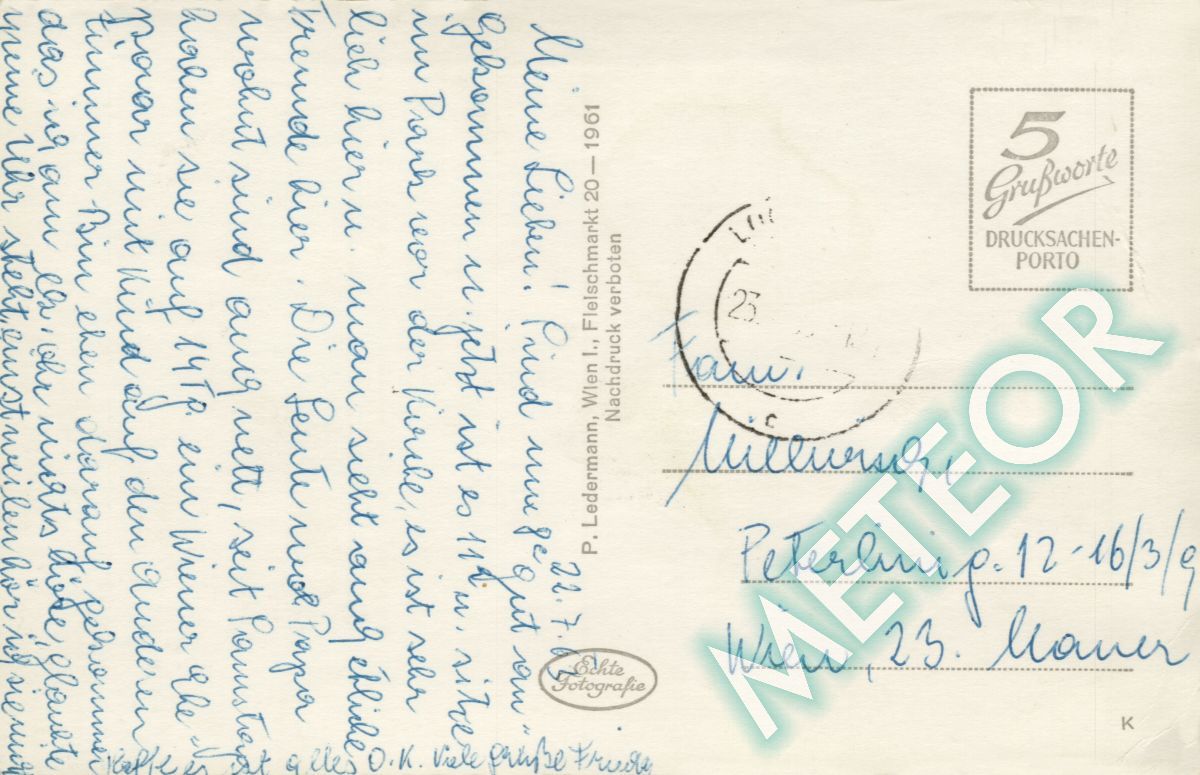 22.7.
Meine Lieben! Sind nun gut an-
gekommen u. jetzt ist es 11h u. sitze
im Park vor der Kirche, es ist sehr
lieb hier u. man sieht auch etliche
Fremde hier. Die Leute wo Papa
wohnt sind auch nett, seit Samstag
haben sie auf 14 Tg. ein Wiener Ehe-
paar mit Kind auf dem anderen
Zimmer. Bin eben darauf gekommen
das ich am lk. Ohr nichts höre, glaubte
meine Uhr steht, einstweilen hör ich sie nur
Hoffe es ist alles O.K. Viele Grüße
P. Ledermann, Wien I., Fleischmarkt 20 — 1961
Nachdruck verboten
Echte
Fotografie
5
Grußworte
DRUCKSACHEN-
PORTO
23.
Fam.
Peterlinig. 12-16/3/9
Wien, 23. Mauer
K
METEOR